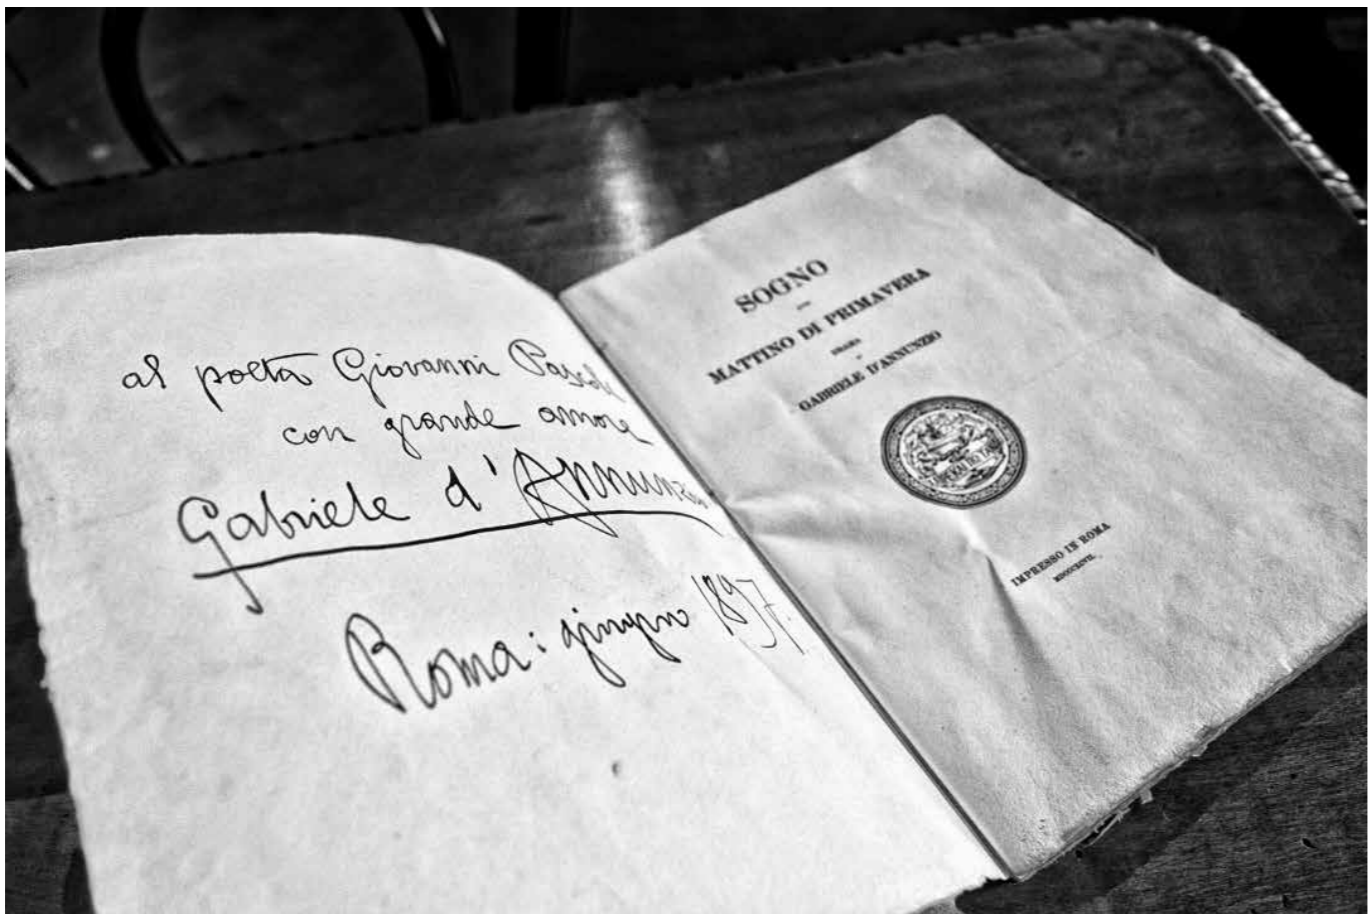 al poeta Giovanni Pascoli
con grande amore
Gabriele d'Annunzio
Roma: giugno 1897.
SOGNO
MATTINO DI PRIMAVERA
DRAMA
GABRIELE D'ANNUNZIO
IMPRESSO IN ROMA
MDCCCXCVII.